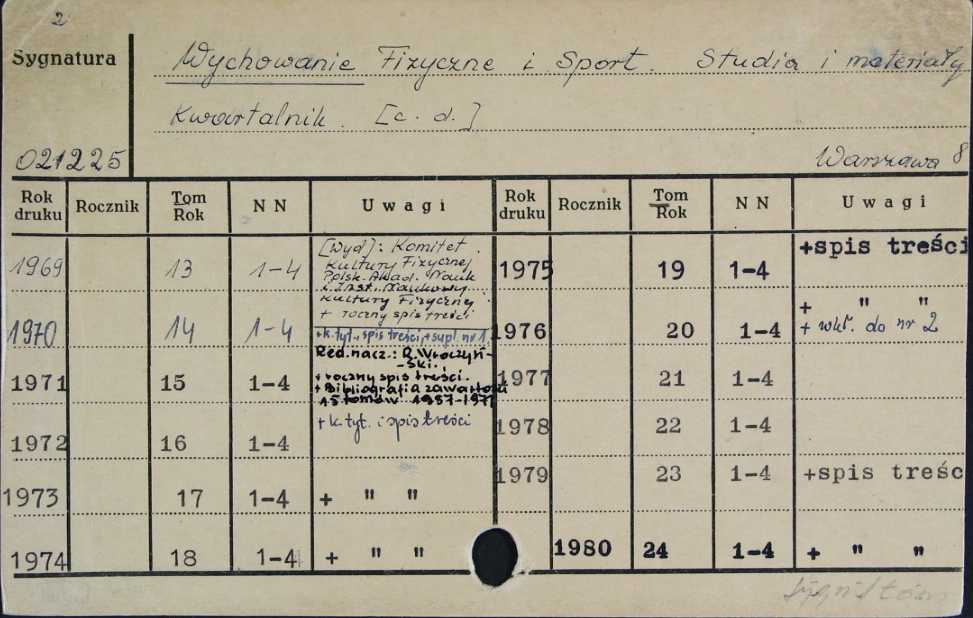 2
Sygnatura
Wychowanie Fizyczne i Sport. Studia i materiały
Kwartalnik. [c. d.]
021225
Warszawa 8
Rok druku Rocznik Tom Rok N N Uwagi
1969 13 1-4 [Wyd]: Komitet
Kultury Fizycznej
Polsk. Akad. Nauk
i Inst. Naukowy
Kultury Fizycznej
+ roczny spis treści
1970 14 1-4 +k.tyt., spis treści,+supl. nr 1.
1971 15 1-4 Red. nacz.: R. Wroczyń-
-ski.
+roczny spis treści.
+Bibliografia zawartości
15 tomów 1957-1971
1972 16 1-4 +k.tyt. i spis treści
1973 17 1-4 + " "
1974 18 1-4 + " "
Rok druku Rocznik Tom Rok N N Uwagi
1975 19 1-4 +spis treści
1976 20 1-4 + " "
+ wkł. do nr 2
1977 21 1-4
1978 22 1-4
1979 23 1-4 +spis treśc
1980 24 1-4 + " "